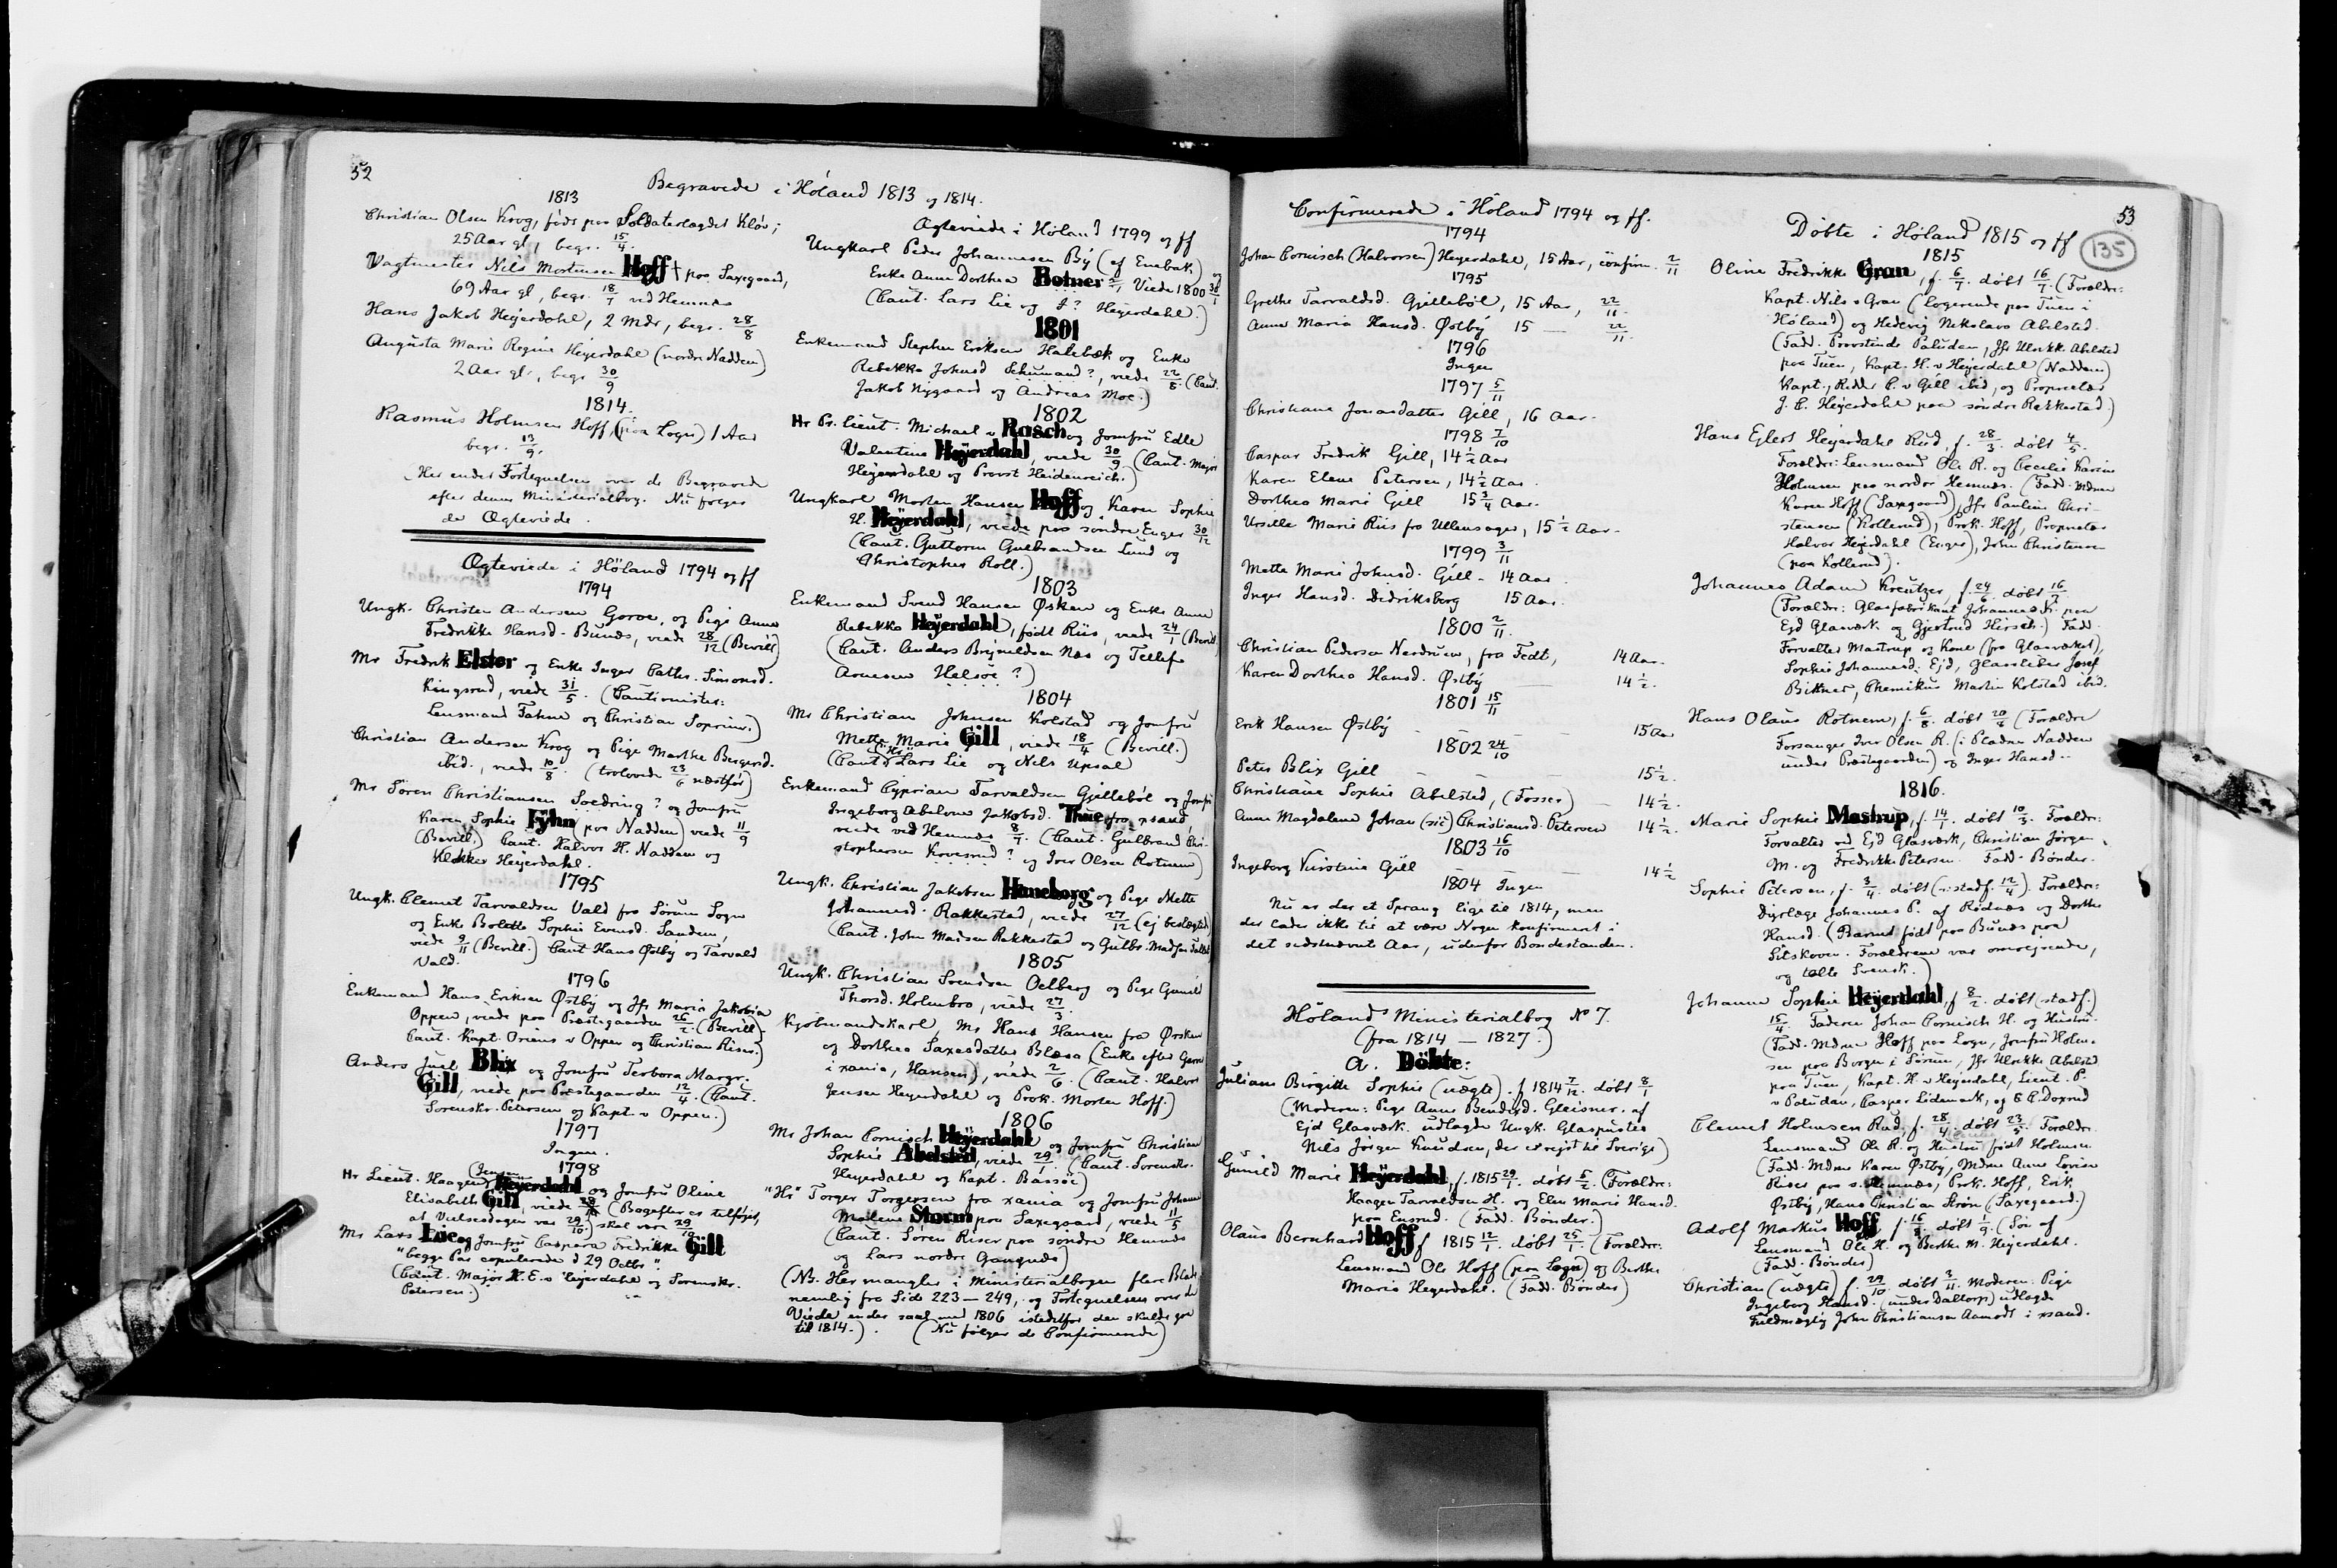 52
Begravede i Höland 1813 og 1814.
1813
Christian Olsen Krog, födt paa Soldaterlægdet Klöv;
25 Aar gl, begr. 15/4.
Vagtmester Nils Mortensen Hoff † paa Saxegaard,
69 Aar gl, begr. 18/7 ved Hemnes
Hans Jakob Heyerdahl, 2 Mdr, begr. 28/8
Augusta Marie Regine Heyerdahl (nordre Nadden)
2 Aar gl, begr 30/9
1814.
Rasmus Holmsen Hoff, (paa Logn) 1 Aar
begr. 13/9.
Her ender Fortegnelsen over de Begravede
efter denne Ministerialbog. Nu fölger
de Ægteviede.
Ægteviede i Höland 1794 og ff
1794
Ungk. Christen Andersen Goroe, og Pige Anne
Fredrikke Hansd. Bunæs, viede 28/12 (Bevill)
Mr Fredrik Elster og Enke Inger Cathr. Simonsd.
Kingsrud, viede 31/5. (Cautionister:
Lensmand Fahne og Christian Soprim.)
Christian Andersen Krog og Pige Marthe Bergersd.
ibid., viede 10/8. (trolovede 23/6 næstför)
Mr Sören Christiansen Soedring? og Jomfru
Karen Sophie Fyhn (paa Nadden) viede 11/9
(Bevill.) Caut. Halvor H. Nadden og
Klokker Heyerdahl.
1795
Ungk. Clemet Tarvaldsen Vald fra Sörum Sogn
og Enke Bolette Sophie Evensd. Sandem,
viede 9/11 (Bevill.) Caut Hans Östby og Tarvald
Vald.
1796
Enkemand Hans Eriksen Östby og Jfr Maria Jakobia
Oppen, viede paa Præstegaarden 26/2. (Bevill)
Caut. Kapt. Oriens v Oppen og Christian Riser.)
Anders Juel Blix og Jomfru Terbora Margr.
Gill, viede paa Præstegaarden 12/4. (Caut.
Sorenskr. Petersen og Kapt. v Oppen.)
1797
Ingen.
1798
Hr Lieut. Haagen (Jensen) Heyerdahl og Jomfru Oline
Elisabeth Gill, viede (Bagefter er tilföjet,
at Vielsesdagen var 29/10) skal være 29/10
Mr Lars Lie og Jomfru Caspara Fredrikke Gill
"begge Par copulerede d 29 Octbr".
(Caut. Major H. E. v Heyerdahl og Sorenskr.
Petersen.)
Ægteviede i Höland 1799 og ff
Ungkarl Peder Johannesen By (af Enebak) og
Enke Anne Dorthea Botner Viede 1800
(Caut. Lars Lie og J? Heyerdahl.)
1801
Enkemand Stephen Eriksen Halebæk og Enke
Rebekka Johnsd Schumand?, viede 22/5. (Caut.
Jakob Nygaard og Andreas Moe.)
1802
Hr Pr. Lieut. Michael v Rosch og Jomfru Edle
Valentine Heyerdahl, viede 30/9 (Caut. Major
Heyerdahl og Provst Heidenreich.)
Ungkarl Morten Hansen Hoff og Karen Sophie
H. Heyerdahl, viede paa söndre Enger 30/12
(Caut. Guttorm Gulbrandsen Lund og
Christopher Roll.)
1803
Enkemand Svend Hansen Ösken og Enke Anne
Rebekka Heyerdahl, födt Riis, viede 24/1 (Bevill
(Caut. Anders Brynildsen Næs og Tellef
Arnesen Helsöe?)
1804
Mr Christian Johnsen Kolstad og Jomfru
Mette Marie Gill, viede 18/4 (Bevill.)
(Caut "Hr" Lars Lie og Nils Upsal)
Enkemand Cyprian Tarvaldsen Gjilleböl og Jomfr
Ingeborg Abelone Jakobsd. Thue, fra xsand,
viede ved Hemnes 8/7. (Caut. Gulbrand Chri-
stophersen Kovesrud? og Iver Olsen Rotnem)
Ungk. Christian Jakobsen Haneborg og Pige Mette
Johannesd. Rakkestad, viede 27/12 (ej beslægted)
(Caut. John Madsen Rakkestad og Gulbr. Madsen
1805
Ungk. Christian Svendsen Oelberg og Pige Gunild
Thorsd. Holmbro, viede 27/3.
Kjöbmandskarl, Mr Hans Hansen fra Örsken
og Dorthea Saxesdatter Blæsa (Enke efter
i xania, Hansen), viede 2/6. (Caut. Halvor
Jensen Heyerdahl og Prok. Morten Hoff.)
1806
Mr Johan Cornisch Heyerdahl og Jomfru Christian
Sophie Abelsted, viede 29/1. (Caut. Sorenskr.
Heyerdahl og Kapt. Bassöe)
"Hr" Torger Torgersen fra xania og Jomfru Johanne
Malene Storm paa Saxegaard, viede 11/5
(Caut. Sören Riser paa söndre Hemnes
og Lars nordre Gangnæs)
(NB. Her mangler i Ministerialbogen flere Blade
nemlig fra Side 223 — 249, og Fortegnelsen over de
Viede ender saal med 1806 istedetfor den skulde gaa
til 1814.) (Nu fölger de Confirmerede)
53
135
Confirmerede i Höland 1794 og ff.
1794
Johan Cornisch (Halvorsen) Heyerdahl, 15 Aar, confirm. 2/11
1795
Grethe Tarvaldsd. Gjilleböl, 15 Aar, 22/11.
Anne Maria Hansd. Östby 15 — 22/11.
1796
Ingen
1797 5/11
Christiane Jonasdatter Gill, 16 Aar.
1798 7/10
Caspar Fredrik Gill, 14 1/2 Aar
Karen Elene Petersen, 14 1/2 Aar.
Dorthea Marie Gill 15 3/4 Aar.
Ursille Marie Riis fra Ullensager, 15 1/2 Aar.
1799 3/11
Mette Marie Johnsd. Gill - 14 Aar.
Inger Hansd. Didriksberg 15 Aar.
1800 2/11.
Christian Pedersen Nerdruen, fra Fedt, 14 Aar.
Karen Dorthea Hansd. Östby — 14 1/2.
1801 15/11
Erik Hansen Östby - - - 15 Aar
1802 24/10
Peter Blix Gill - - - 15 1/2.
Christiane Sophie Abelsted, (Fosser) — 14 1/2.
Anne Magdalene Johan (sic) Christiansd. Petersen 14 1/2.
1803 16/10
Ingeborg Kirstina Gill - - 14 1/2
1804 Ingen
Nu er der et Sprang lige til 1814, men
der lader ikke til at være Nogen konfirmeret i
det sidstnævnte Aar, udenfor Bondestanden.
Hölands Ministerialbog No 7.
(fra 1814 — 1827.)
a. Döbte:
Juliane Birgitte Sophie (uægte). f 1814 7/12. döbt 8/1
(Moderen: Pige Anne Bendigd. Gleisner. af
Ejd Glasværk. udlagde Ungk. Glaspuster
Nils Jörgen Knudsen, der er rejst til Sverige)
Gunild Marie Heyerdahl, f. 1815 29/1. döbt 5/2. (Forældre:
Haagen Tarvaldsen H. og Elen Marie Hansd.
paa Ensrud. (Fadd. Bönder.)
Olaus Bernhard Hoff f 1815 12/1. döbt 25/1. (Forældre:
Lensmand Ole Hoff (paa Logn) og Berthe
Marie Heyerdahl. (Fadd. Bönder)
Döbte i Höland 1815 og ff
1815
Oline Fredrikke Gran, f. 6/7. döbt 16/7. (Forældre:
Kapt. Nils v Gran (logerende paa Tuen i
Höland) og Hedevig Nikolava Abelsted.
(Fadd. Provstinde Paludan, Jfr Ulrikke Abelsted
paa Tuen, Kapt. H. v Heyerdahl (Nadden)
Kapt., Ridder C. v Gill ibid, og Proprietær
J. C. Heyerdahl paa söndre Rakkestad.)
Hans Eglert Heyerdahl Rud, f. 28/3. döbt 4/5.
Forældre: Lensmand Ole R. og Cecilie Karine
Holmsen paa nordre Hemnæs. (Fadd. Mdme
Karen Hoff (Saxegaard), Jfr Pauline Chri-
stensen (Kollerud), Prok. Hoff, Proprietær
Halvor Heyerdahl (Enger), John Christensen
(paa Kollerud).
Johannes Adam Kreutzer, f. 24/6. döbt 16/7.
(Forældre: Glasfabrikant Johannes K. paa
Ejd Glasværk og Gjertrud Hirsch.) Fadd.
Forvalter Mastrup og Kone (fra Glasværket),
Sophie Johannesd. Ejd, Glassliber Josef
Bikner, Chemikus Martin Kolstad ibid.
Hans Olaus Rotnem, f. 6/8. döbt 20/8 (Forældre
Forsanger Iver Olsen R. (i Pladsen Nadden
under Præstegaarden) og Inger Hansd..
1816.
Marie Sophie Mastrup, f. 14/1. döbt 10/3. Forældr:
Forvalter ved Ejd Glasværk, Christian Jörgen
M. og Fredrikke Petersen. Fadd. Bönder.
Sophie Petersen, f. 3/4. döbt (stadf. 12/4). Forældre:
Dyrlæge Johannes P. af Rödnæs og Dorthe
Hansd. (Barnet födt paa Bunæs paa
Sitskoven. Forældrene var omrejsende,
og talte Svensk.)
Johanne Sophie Heyerdahl, f 8/2. döbt (stadf.)
15/4. Faderen Johan Cornisch H. og Hustru.
(Fadd. Mdme Hoff paa Logn, Jomfru Holm-
sen paa Borgen i Sörum, Jfr Ulrikke Abelsted
paa Tuen, Kapt. H. v Heyerdahl, Lieut. P.
v Paludan, Casper Lidemark, og E C. Doxrud
Clemet Holmsen Rud, f. 28/4. döbt 23/5. Forældre
Lensmand Ole R. og Hustru födt Holmsen.
(Fadd. Mdme Karen Östby, Mdme Anne Lovise
Riser paa s. Hemnæs, Prok. Hoff, Erik
Östby, Hans Christian Strön (Saxegaard.)
Adolf Markus Hoff, f. 16/8. döbt 1/9. (Sön af
Lensmand Ole H. og Berthe M. Heyerdahl.
(Fadd. Bönder)
Christian (uægte) f. 29/10. döbt 3/11. Moderen: Pige
Ingeborg Hansd. (under Daltorp) udlagde
Fuldmægtig John Christiansen Aamodt i xsand.